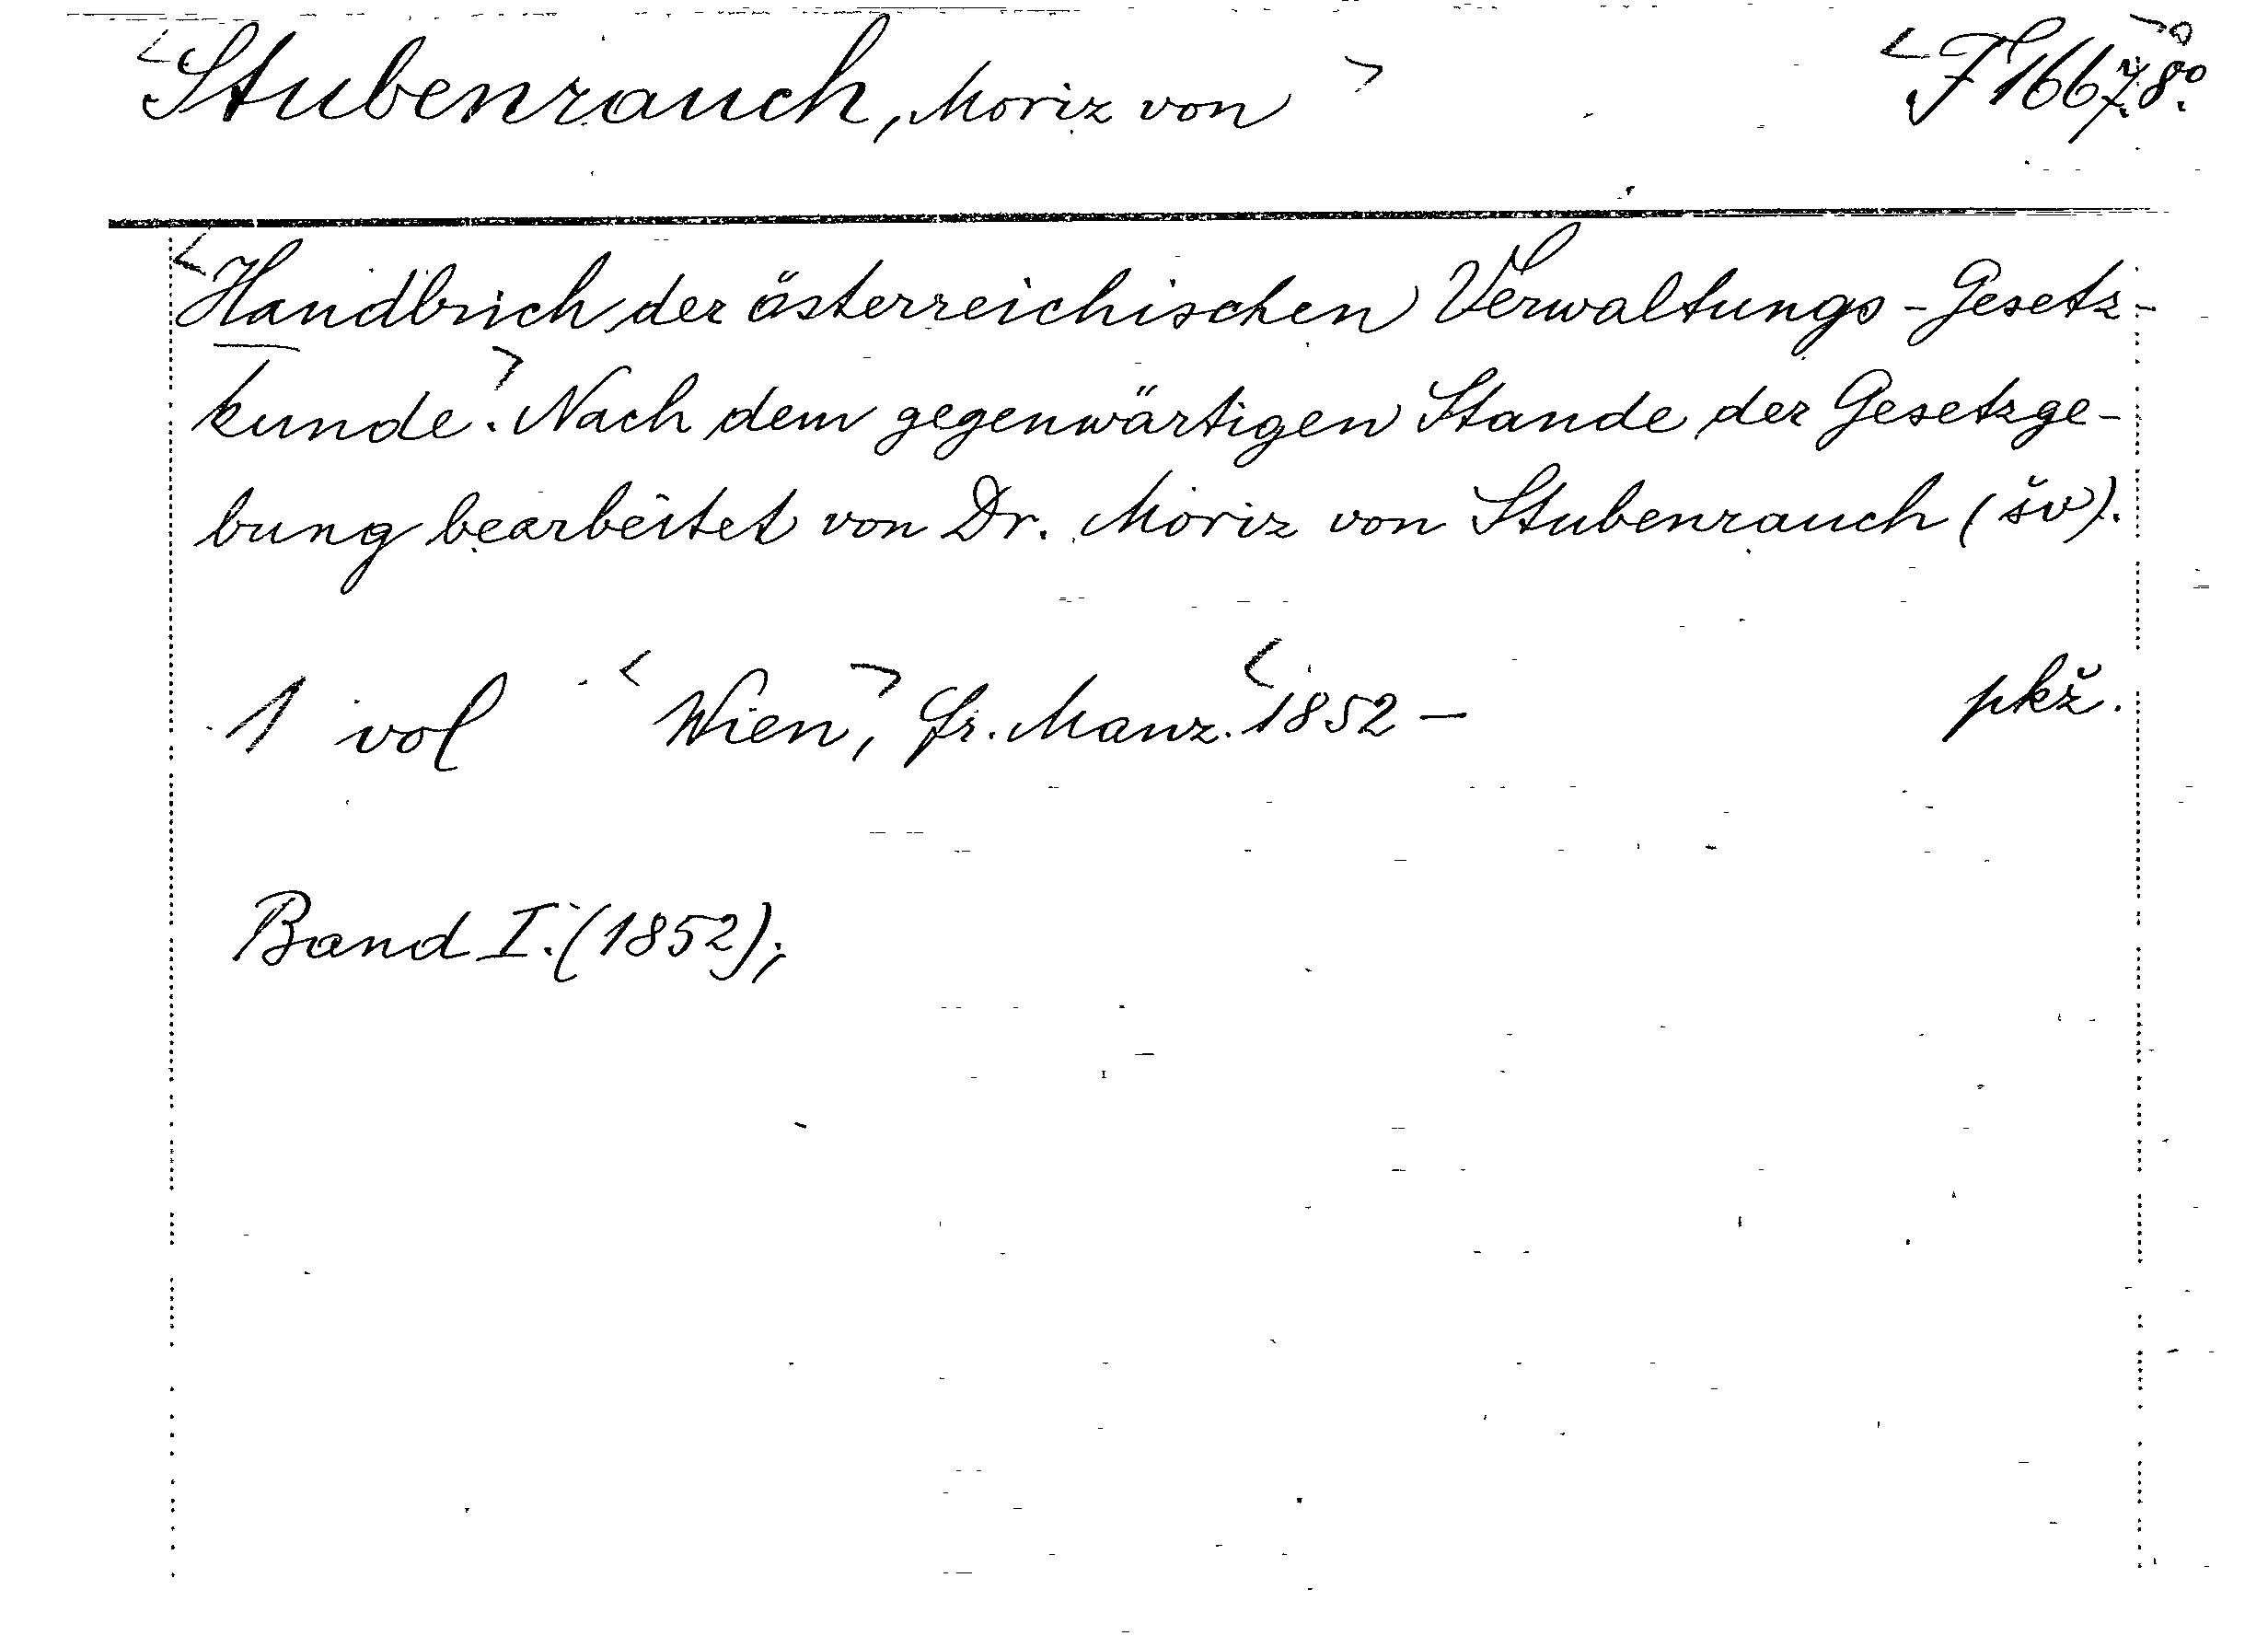 Stubenrauch, Moriz von F 1667, 8°
Handbuch der österreichischen Verwaltungs-Gesetz-
kunde. Nach dem gegenwärtigen Stande der Gesetzge-
bung bearbeitet von Dr. Moriz von Stubenrauch (šv).
1 vol Wien, Fr. Manz. 1852 – pkž.
Band I. (1852);